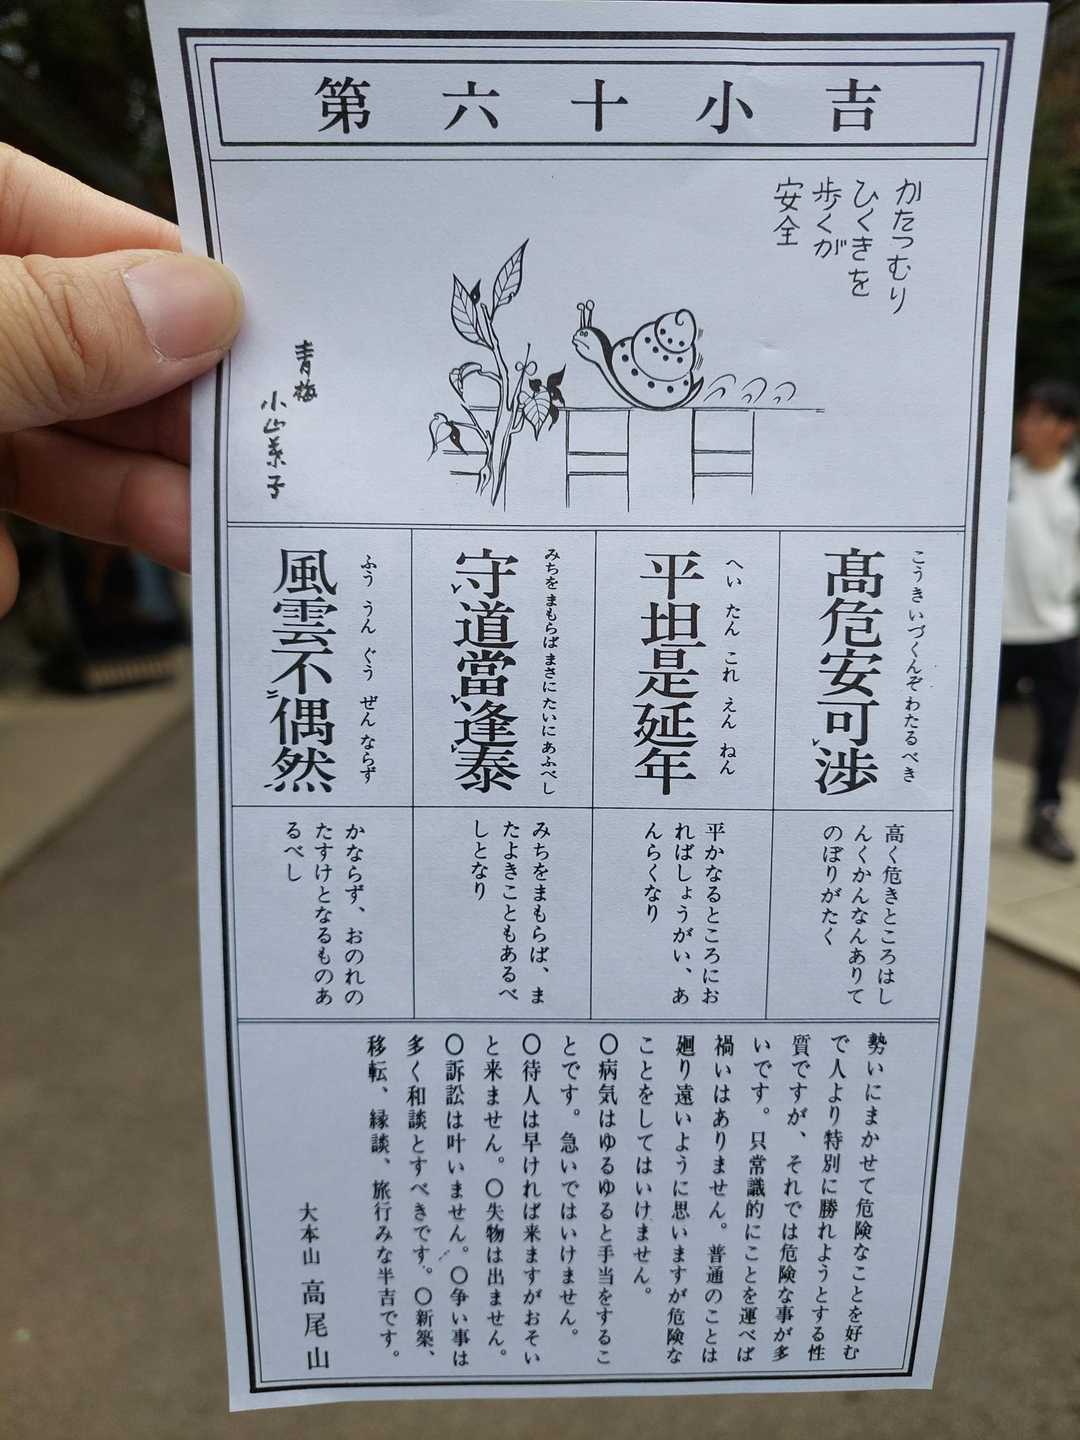 第六十小吉
かたつむり
ひくきを
歩くが
安全
青梅
小山菜子
こうきいづくんぞわたるべき
髙危安可渉
へいたんこれえんねん
平坦是延年
みちをまもらばまさにたいにあふべし
守道當逢泰
ふううんぐうぜんならず
風雲不偶然
高く危きところはし
んくかんなんありて
のぼりがたく
平かなるところにお
ればしょうがい、あ
んらくなり
みちをまもらば、ま
たよきこともあるべ
しとなり
かならず、おのれの
たすけとなるものあ
るべし
勢いにまかせて危険なことを好む
で人より特別に勝れようとする性
質ですが、それでは危険な事が多
いです。只常識的にことを運べば
禍いはありません。普通のことは
廻り遠いように思いますが危険な
ことをしてはいけません。
〇病気はゆるゆると手当をするこ
とです。急いではいけません。
〇待人は早ければ来ますがおそい
と来ません。〇失物は出ません。
〇訴訟は叶いません。〇争い事は
多く和談とすべきです。〇新築、
移転、縁談、旅行みな半吉です。
大本山 高尾山